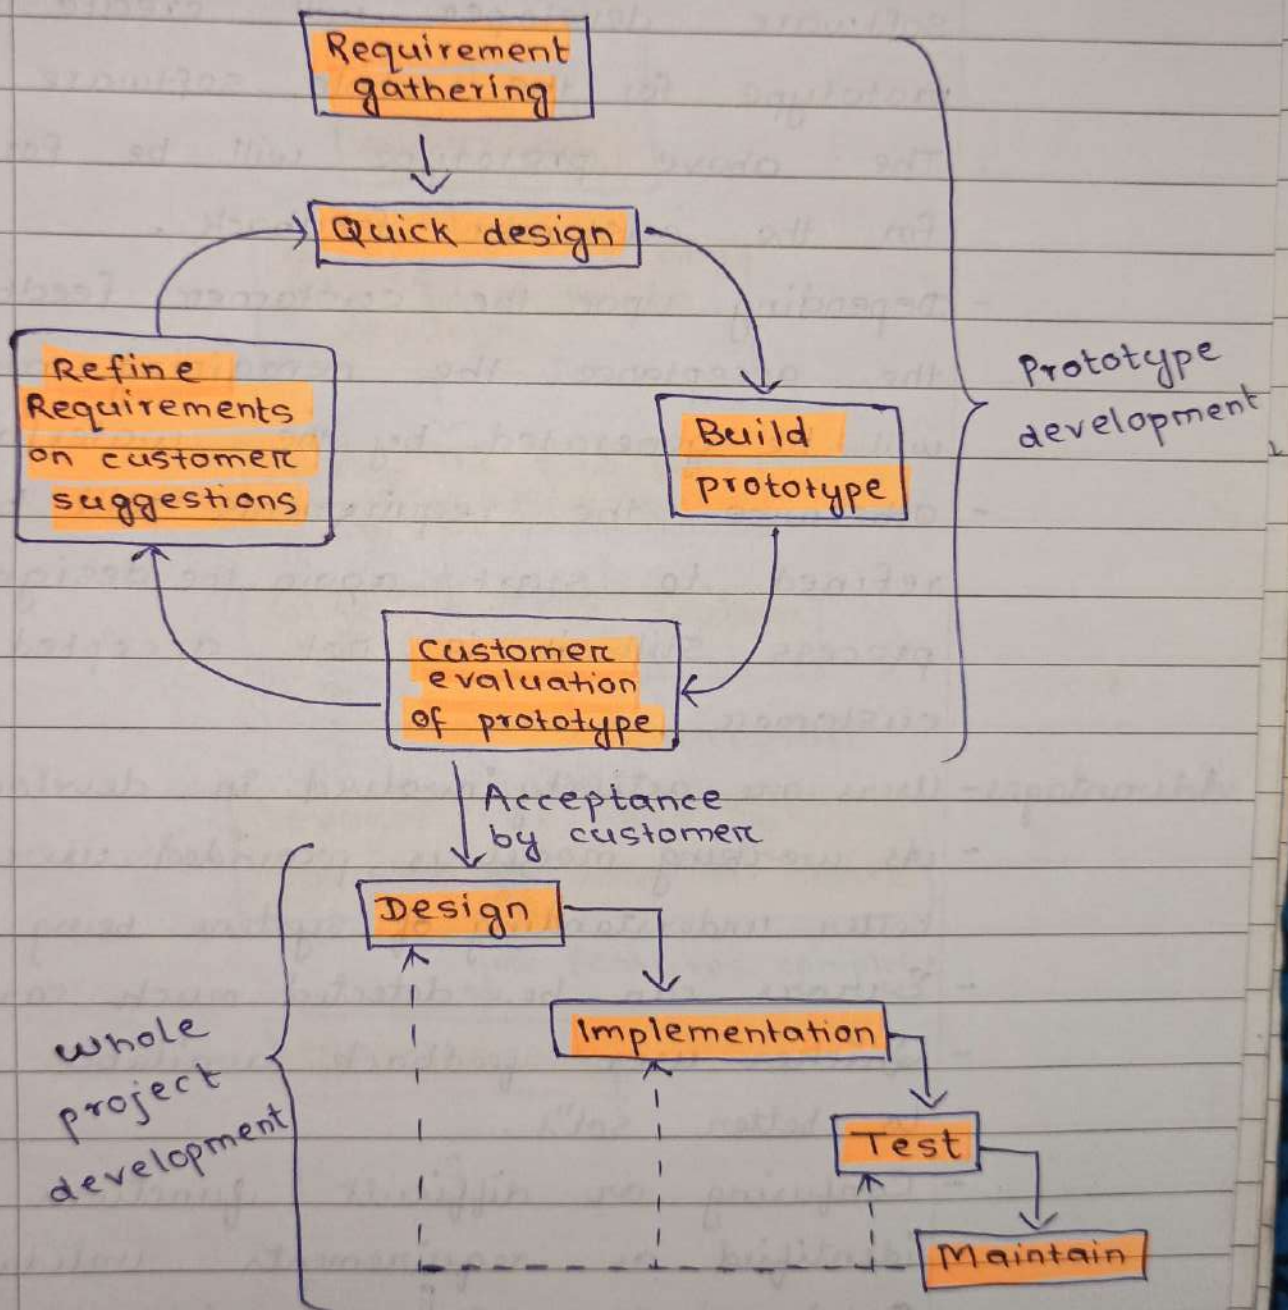 Requirement
gathering
Quick design
Refine
Requirements
on customer
suggestions
Build
prototype
Prototype
development
customer
evaluation
of prototype
Acceptance
by customer
Design
Implementation
Test
Maintain
whole
project
development